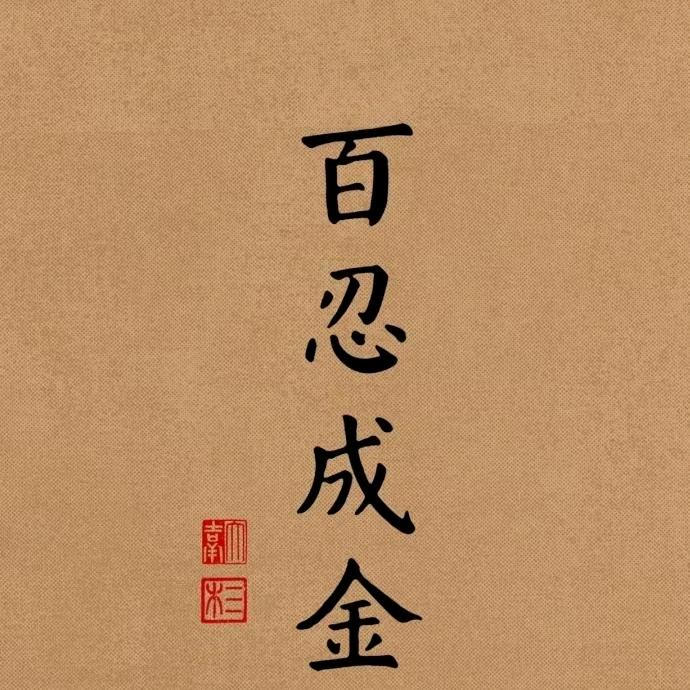 百忍成金